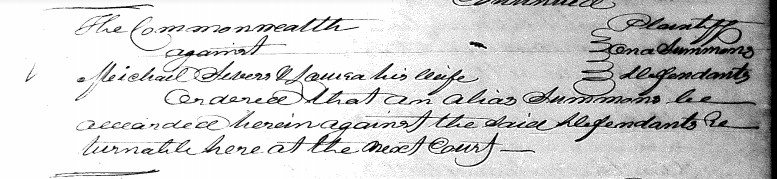 Continued
The Commonwealth Plaintiff
against on a Summons
Michael Sivers & Louisa his wife Defendants
Ordered that an alias Summons be
awarded herein against the said Defendants Re
turnable here at the next Court —